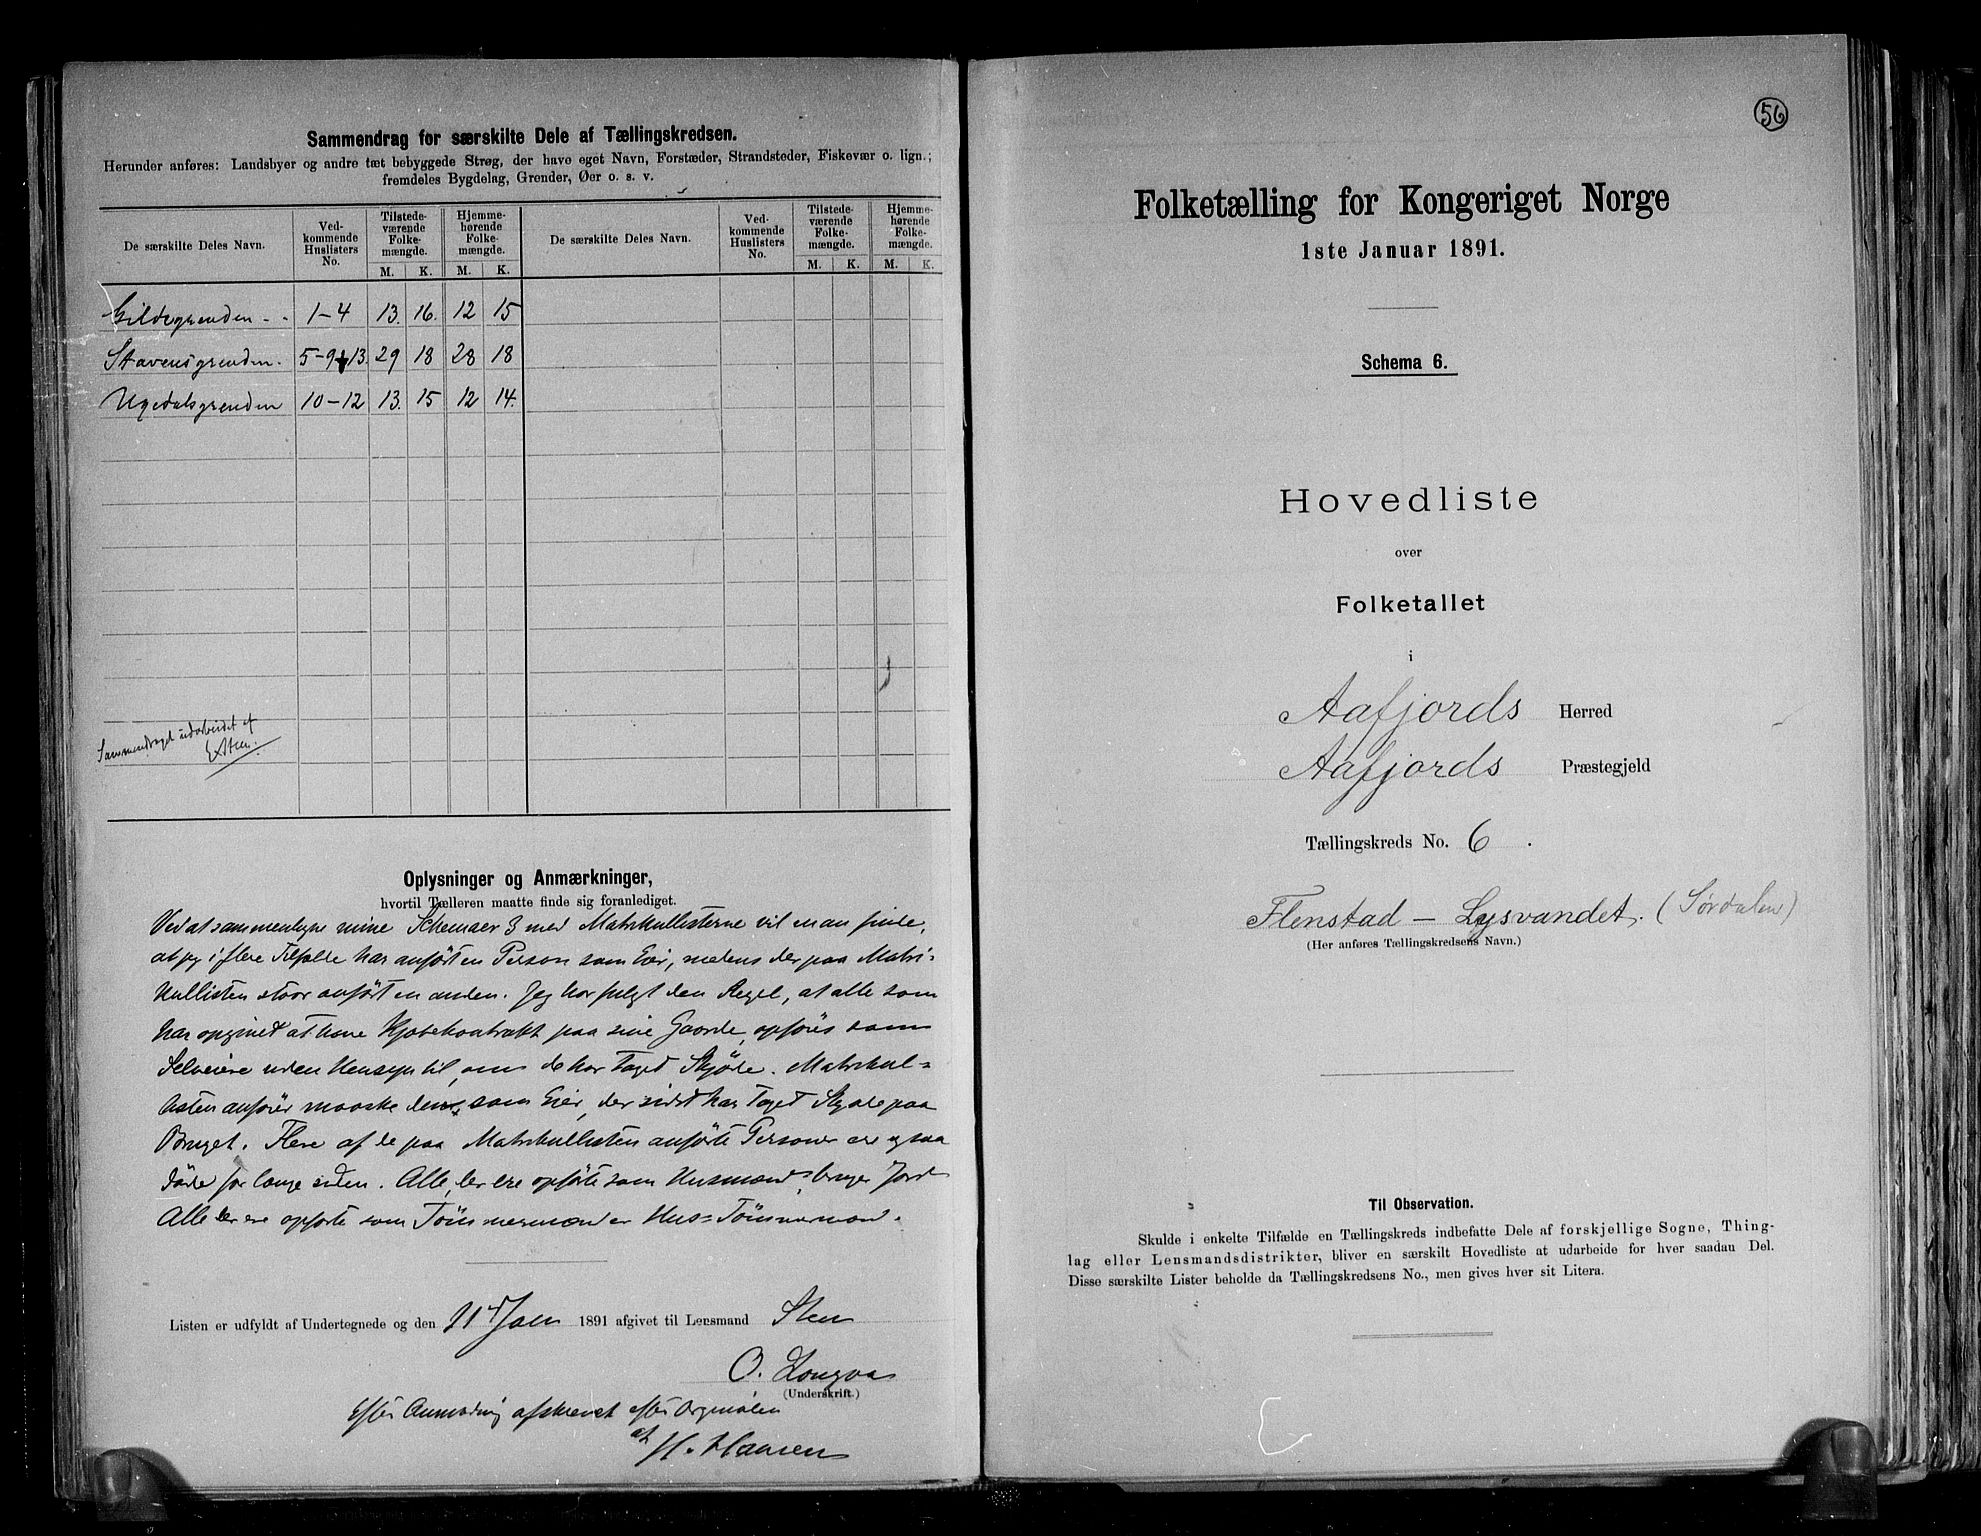 Sammendrag for særskilte Dele af Tællingskredsen.
Herunder anføres: Landsbyer og andre tæt bebyggede Strøg, der have eget Navn, Forstæder, Strandsteder, Fiskevær o. lign.;
fremdeles Bygdelag, Grender, Øer o. s. v.
De særskilte Deles Navn. Ved-kommende Huslisters No. Tilstede-værende Folke-mængde. Hjemme-hørende Folke-mængde. De særskilte Deles Navn. Ved-kommende Huslisters No. Tilstede-værende Folke-mængde. Hjemme-hørende Folke-mængde.
M. K. M. K. M. K. M. K.
Gildegrenden 1-4 13. 16. 12 15
Stavensgrenden. 5-9+13. 29 18 28 18
Ugedalsgrenden 10-12 13. 15 12 14.
Sammendraget udarbeidet af
Oplysninger og Anmærkninger,
hvortil Tælleren maatte finde sig foranlediget.
Ved at sammenligne mine Schemaer 3 med Matrikullisterne vil man finde,
at jeg i flere Tilfælde har anført en Person som Eier, medens der paa Matri-
kullisten staar anført en anden. Jeg har fulgt den Regel, at alle som
har opgivet at have Kjøbekontrakt paa sine Gaarde, opføres som
Selveiere uden Hensyn til, om de har taget Skjøde. Matrikul-
listen anfører maaske den, som Eier, der sidst har taget Skjøde paa
Bruget. Flere af de paa Matrikullisten anførte Personer ere ogsaa
døde for længe siden. Alle, der ere opførte som Husmænd, bruger Jord
Alle der ere opførte som Tømmermænd er Hus-Tømmermænd.
Listen er udfyldt af Undertegnede og den 11t Jan 1891 afgivet til Lensmand Sten
O. Longva
(Underskrift.)
Efter Anmodning afskrevet efter Orginalen
af H. Hansen
56
Folketælling for Kongeriget Norge
1ste Januar 1891.
Schema 6.
Hovedliste
over
Folketallet
i
Aafjords Herred
Aafjords Præstegjeld
Tællingskreds No. 6.
Flenstad - Lysvandet. (Sørdalen)
(Her anføres Tællingskredsens Navn.)
Til Observation.
Skulde i enkelte Tilfælde en Tællingskreds indbefatte Dele af forskjellige Sogne, Thing-
lag eller Lensmandsdistrikter, bliver en særskilt Hovedliste at udarbeide for hver saadan Del.
Disse særskilte Lister beholde da Tællingskredsens No., men gives hver sit Litera.